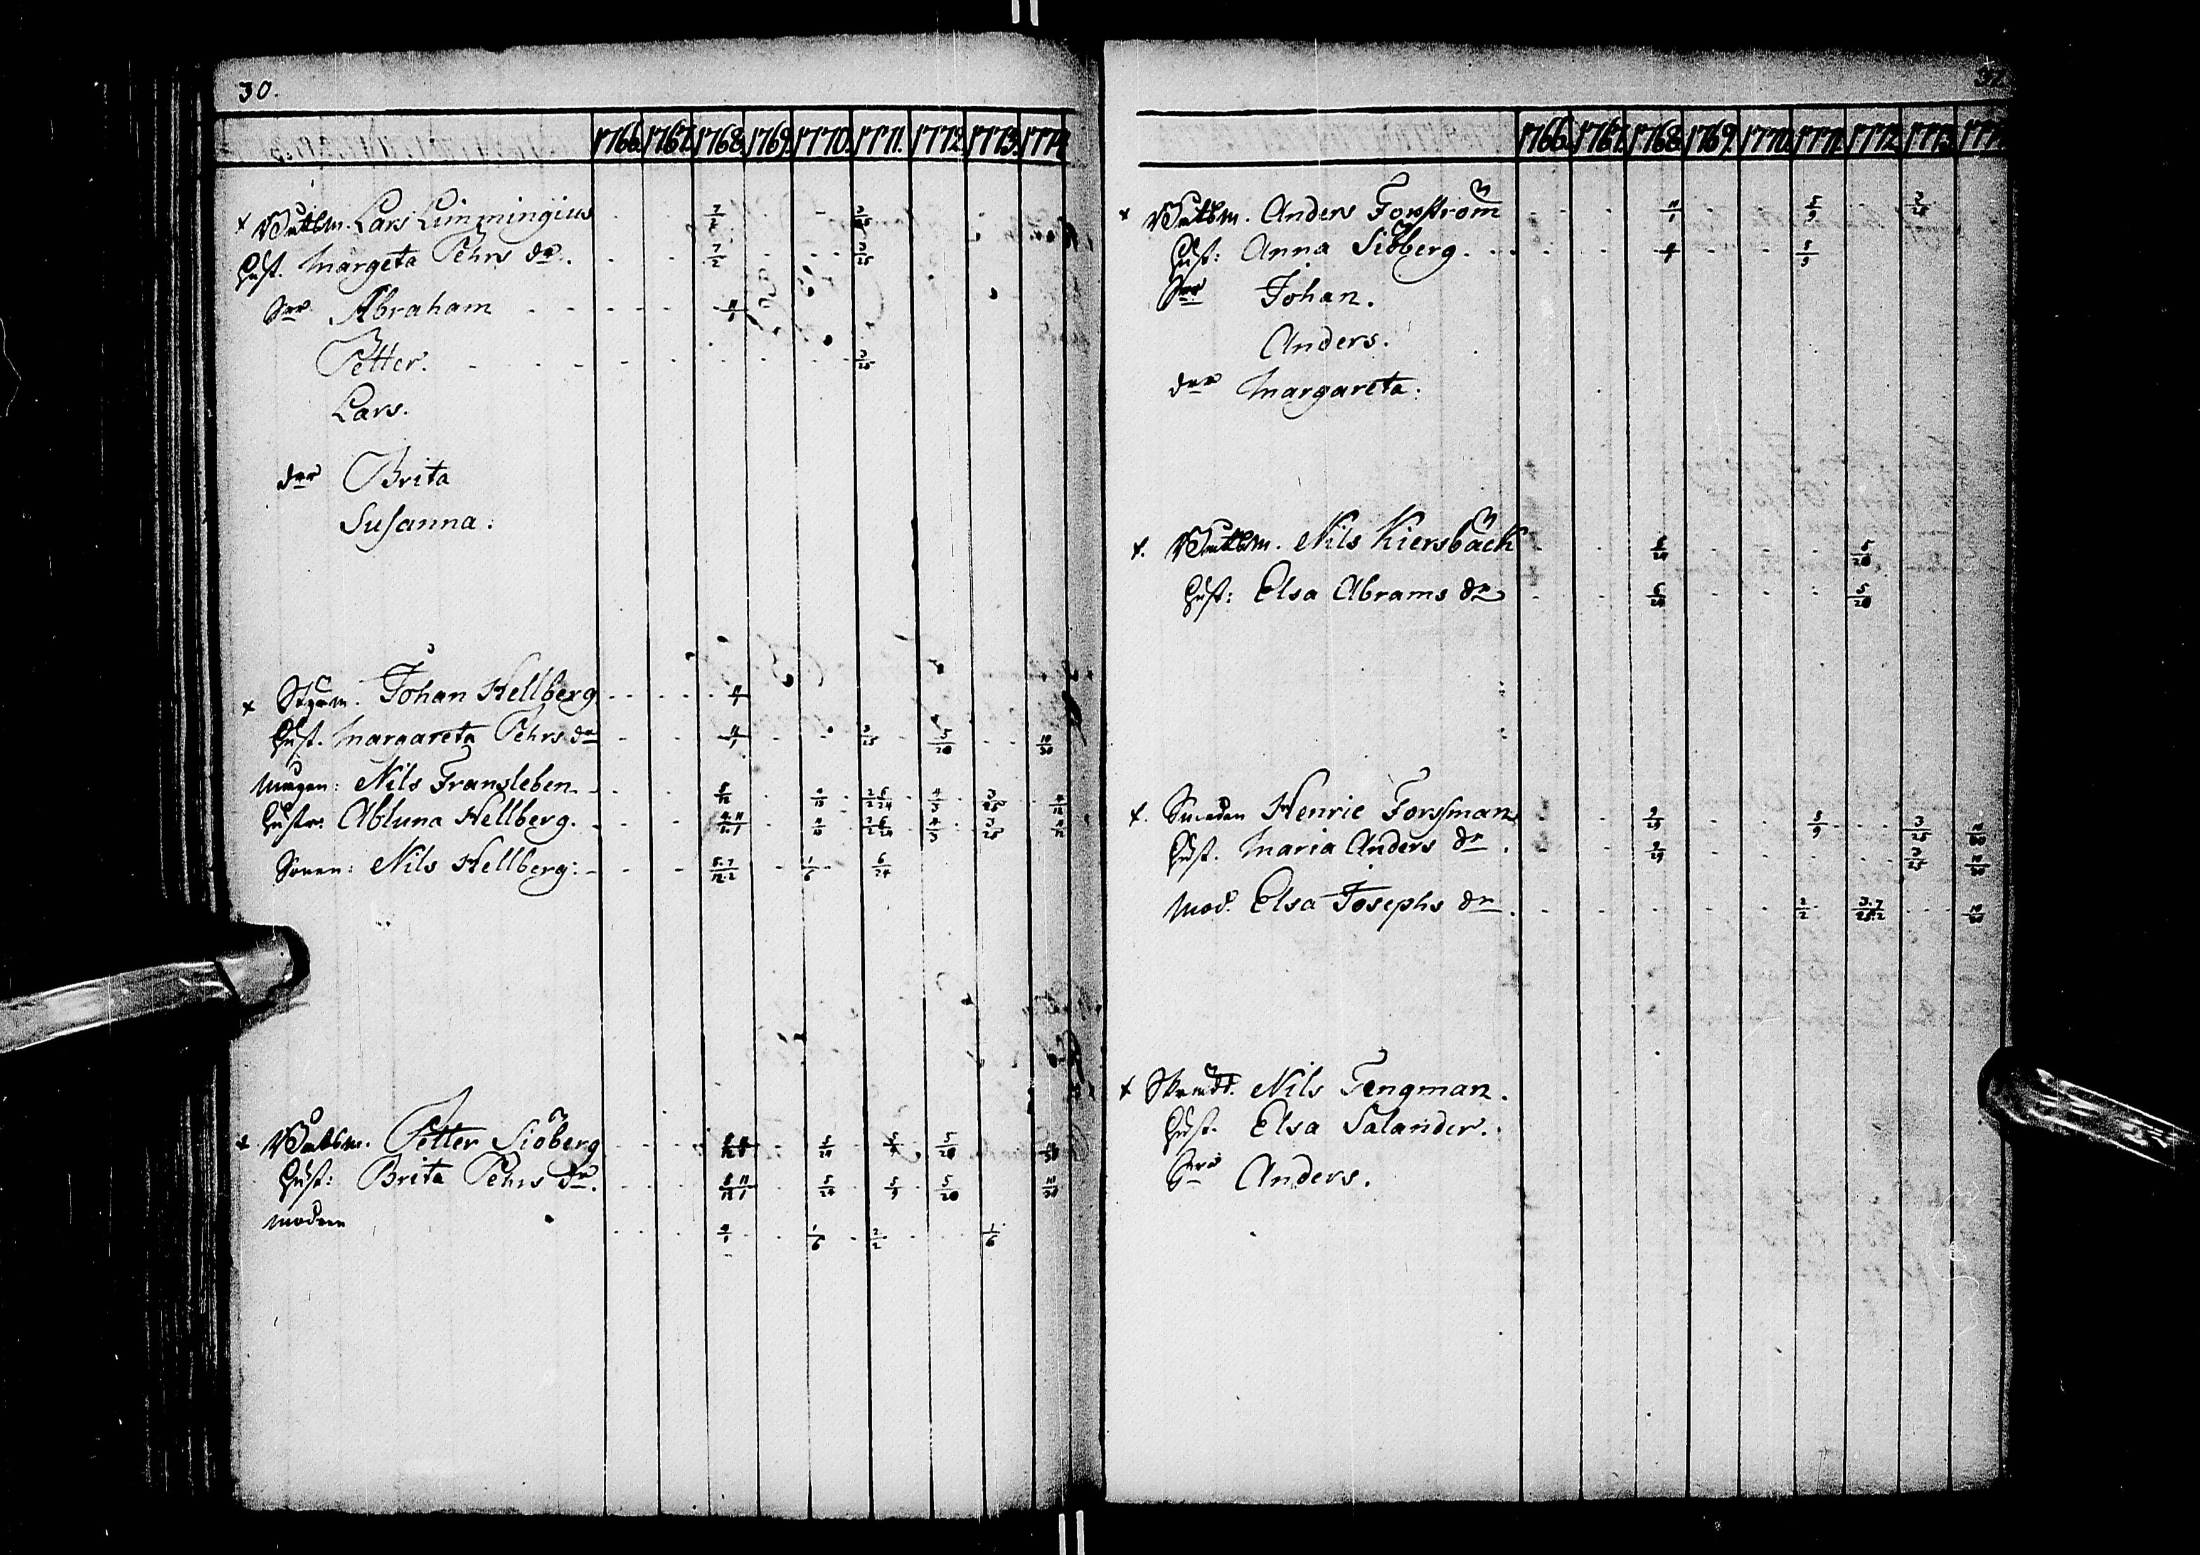 30.
1766. 1767. 1768. 1769. 1770. 1771. 1772. 1773. 1774
+ Båtsm. Lars Limmingius 7/2 3/25
Hust. Margeta Pehrs dr. 7/2 3/25
Sr Abraham 11/1
Petter. 3/25
Lars.
dr Brita
Susanna.
+ Styrm. Johan Hellberg 11/1
Hust. Margareta Pehrs dr 11/1 3/25 5/20 10/30
Mågen: Nils Fransleben 5/12 4/13 2/2 6/24 4/3 3/25 4/12
Hustr: Abluna Hellberg. 4/13 2/2 6/24 4/3 3/25 4/12
Sonen: Nils Hellberg: 5.7/12.2 1/6 6/24
+ Båtsm. Petter Siöberg 5/24 5/9 5/20 10/30
Hust: Brita Pehrs dr. 5/24 5/9 5/20 10/30
Modren 4/1 1/6 2/2 1/6
1766. 1767. 1768. 1769. 1770. 1771. 1772. 1773. 1774.
+ Båtsm. Anders Forström 11/1 5/9 3/25
Hust: Anna Siöberg. 5/9
Sr Johan.
Anders.
dr Margareta.
+. Båtsm. Nils Kiersbäck 6/24 5/20
Hust: Elsa Abrams dr 6/24 5/20
+. Henric Forssman 9/29 5/9 3/25 10/30
Hust. Maria Anders dr. 9/29 3/25 10/30
Mod. Elsa Josephs dr. 2/2 3.7/25.2 10/30
+ Nils Tengman.
Hust. Elsa Salander.
Sr Anders.